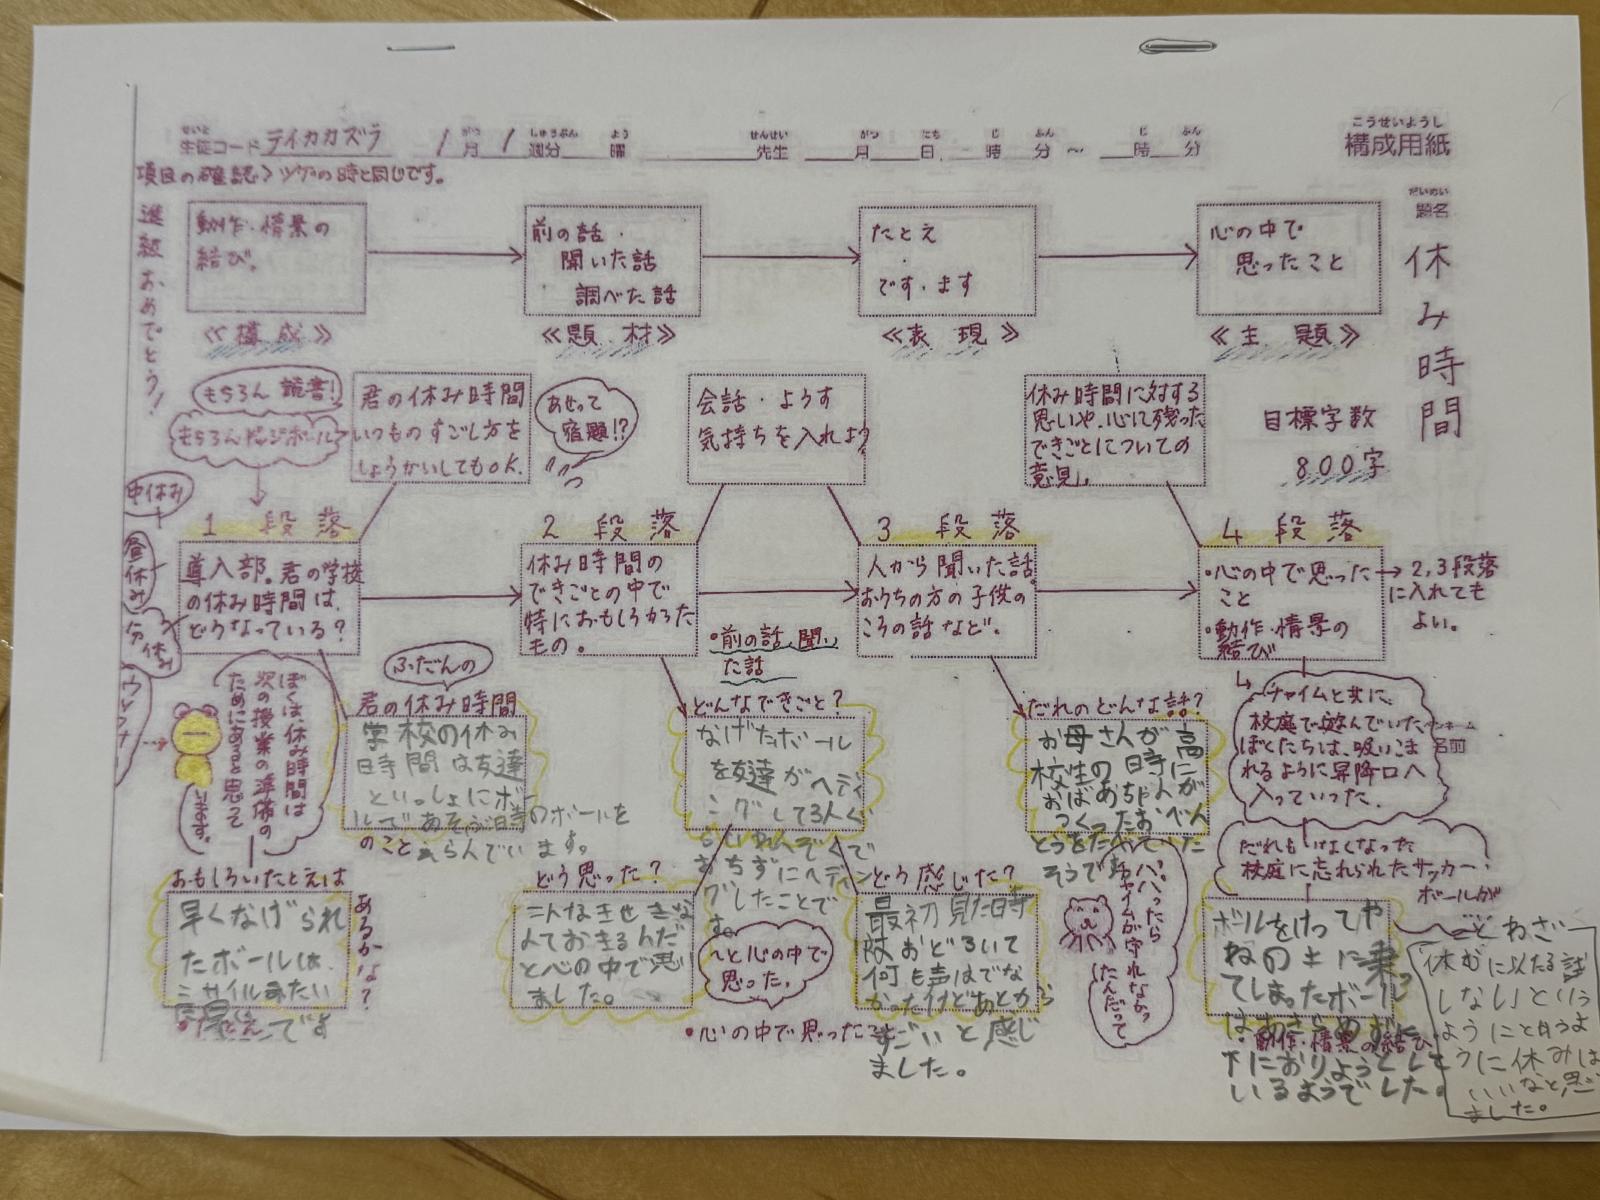 せいと
生徒コード テイカカズラ 1 がつ月 1 しゅうぶん週分 よう曜 せんせい先生 がつ月 にち日 じ時 ふん分 ～ じ時 ふん分
こうせいようし
構成用紙
項目の確認＞ツゲの時と同じです。
だいめい
題名
休み時間
目標字数
800字
進級おめでとう！
動作・情景の
結び。
≪構成≫
前の話・
聞いた話
調べた話
≪題材≫
たとえ
・
です・ます
≪表現≫
心の中で
思ったこと
≪主題≫
もちろん読書！
もちろんドッジボール？
君の休み時間
いつものすごし方を
しょうかいしてもOK.
あせって
宿題!?
会話・ようす
気持ちを入れよう
休み時間に対する
思いや、心に残った
できごとについての
意見。
中休み
昼休み
分休み
1段落
導入部。君の学校
の休み時間は、
どうなっている？
2段落
休み時間の
できごとの中で
特におもしろかった
もの。
3段落
人から聞いた話。
おうちの方の子供の
ころの話など。
4段落
・心の中で思った
こと
・動作・情景の
結び
→2,3段落
に入れても
よい。
・前の話、聞い
た話
ぼくは、休み時間は
次の授業の準備の
ためにあると思って
います。
ふだんの
君の休み時間
学校の休み
時間は友達
といっしょにボー
ルであそぶ時のボールを
のこと えらんでいます。
どんなできごと？
なげたボール
を友達がヘディ
ングして3人く
らいれんぞくで
おちずにヘディン
グしたことで
す。
だれのどんな話？
お母さんが高
校生の時に
おばあちゃんが
つくったおべん
とうをたべていた
そうです
チャイムと共に、
校庭で遊んでいた
ぼくたちは、吸いこま
れるように昇降口へ
入っていった.
ペンネーム
名前
だれもいなくなった
校庭に忘れられたサッカー
ボールが
おもしろいたとえは
あるかな？
早くなげられ
たボールは、
ミサイルみたい
・たとえ です
どう思った？
こんなきせきな
んておきるんだ
と心の中で思い
ました。
へと心の中で
思った.
・心の中で思ったこと
どう感じた？
最初見た時
はおどろいて
何も声はでな
かったけどあとから
すごいと感じ
ました。
ハハハったら
チャイムが守れなかっ
たんだって
ボールをけってや
ねの上に乗っ
てしまったボール
は、あきらめずに
・動作・情景の結び
下におりようとして
いるようでした。
ことわざ
「休むに似たる話
しない」という
ようにと自うよ
うに休みは
いいなと思い
ました。